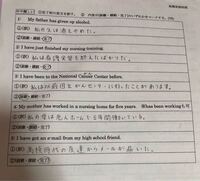 1. My father has given up alcohol.
①(訳) 私の父は酒をやめた。
②(経験・継続・完了)
2. I have just finished my nursing training.
①(訳) 私は看護実習を終えたばかりだ。
②(経験・継続・完了)
3. I have been to the National Cancer Center before.
①(訳) 私は以前国立がんセンターに行ったことがあります。
②(経験・継続・完了)
4. My mother has worked in a nursing home for five years.
①(訳) 私の母は老人ホームで5年間働いている。
②(経験・継続・完了)
5. I have got an e-mail from my high school friend.
①(訳) 高校時代の友達からメールが届いた。
②(経験・継続・完了)